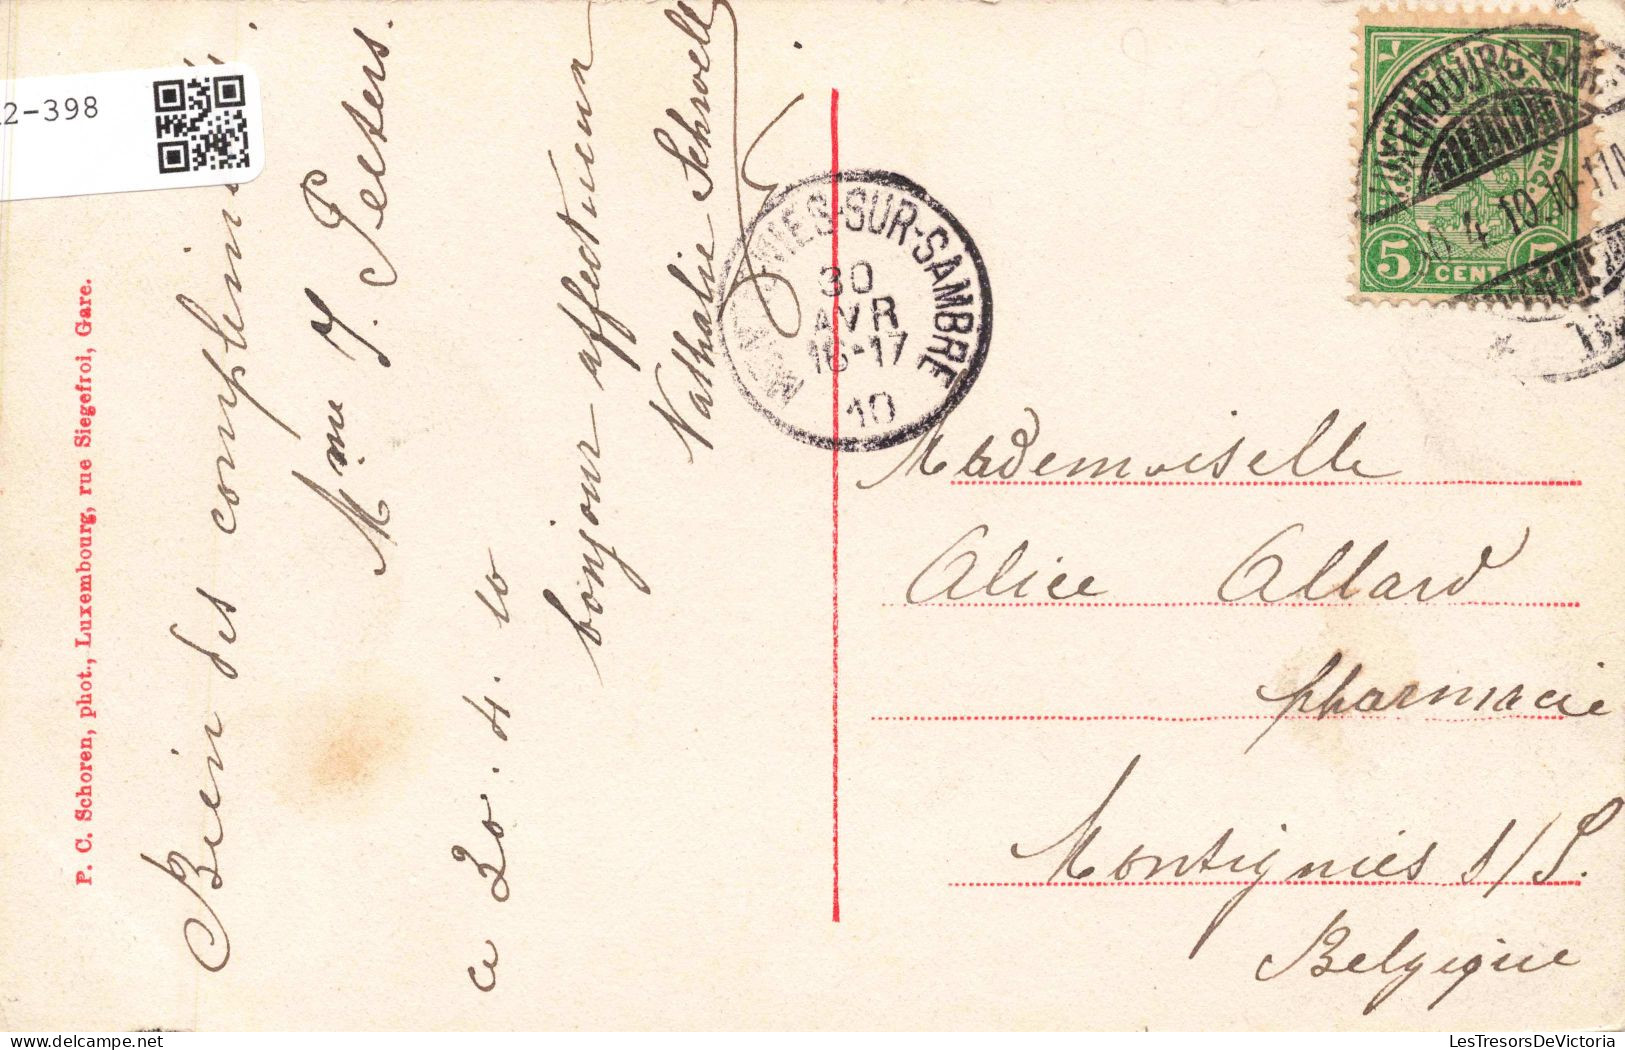 2-398
P. C. Schoren, phot., Luxembourg, rue Siegefroi, Gare.
Bien des compliments
Mme J. Peeters.
ce 20. 4. 10
bonjour affectueux
Nathalie Schroell
MONTIGNIES-SUR-SAMBRE
30
AVR
16-17
10
LUXEMBOURG GARE
30.4 10.10-11
5 CENT 5
Mademoiselle
Alice Allard
pharmacie
Montignies s/S.
Belgique
LesTresorsDeVictoria